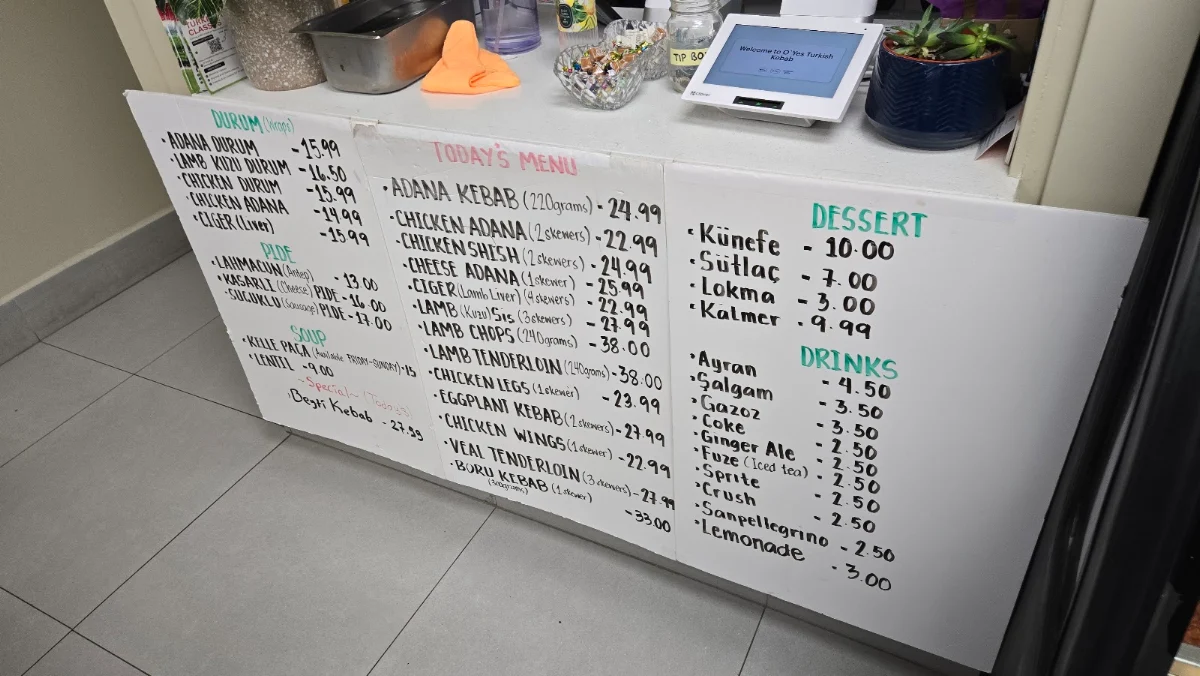 TIP BO
Welcome to O'Yes Turkish
Kebab
DURUM (Wraps)
• ADANA DURUM - 15.99
• LAMB KUZU DURUM - 16.50
• CHICKEN DURUM - 15.99
• CHICKEN ADANA - 14.99
• CIGER (Liver) - 15.99
PIDE
• LAHMACUN (Antep) - 13.00
• KASARLI (Cheese) PIDE - 16.00
• SUCUKLU (Sausage) PIDE - 17.00
SOUP
• KELLE PAÇA (Available FRIDAY-SUNDAY) - 15
• LENTIL - 9.00
- Special ~ (Today's)
• Desti Kebab - 27.99
TODAY'S MENU
• ADANA KEBAB (220grams) - 24.99
• CHICKEN ADANA (2skewers) - 22.99
• CHICKEN SHISH (2skewers) - 24.99
• CHEESE ADANA (1skewer) - 25.99
• CIGER (Lamb Liver) (4skewers) - 22.99
• LAMB (Kuzu) SIS (3skewers) - 27.99
• LAMB CHOPS (240grams) - 38.00
• LAMB TENDERLOIN (240grams) - 38.00
• CHICKEN LEGS (1skewer) - 23.99
• EGGPLANT KEBAB (2skewers) - 27.99
• CHICKEN WINGS (1skewer) - 22.99
• VEAL TENDERLOIN (3skewers) - 27.99
• BORU KEBAB (1skewer) - 33.00
(300grams)
DESSERT
• Künefe - 10.00
• Sütlaç - 7.00
• Lokma - 3.00
• Kalmer - 9.99
DRINKS
• Ayran - 4.50
• Şalgam - 3.50
• Gazoz - 3.50
• Coke - 2.50
• Ginger Ale - 2.50
• Fuze (Iced tea) - 2.50
• Sprite - 2.50
• Crush - 2.50
• Sanpellegrino - 2.50
• Lemonade - 3.00